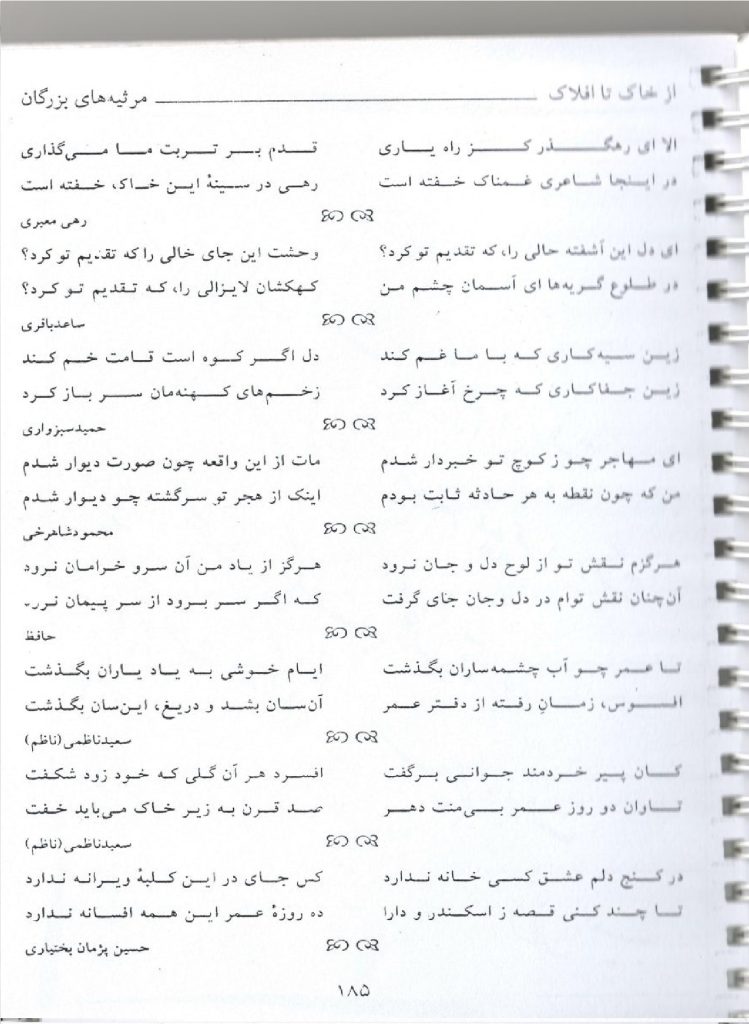 از خاک تا افلاک ــــــــــ مرثیه‌های بزرگان
الا ای رهگذر کز راه یاری قدم بر تربت ما می‌گذاری
در اینجا شاعری غمناک خفته است رهی در سینهٔ این خاک، خفته است
رهی معیری
ای دل این آشفته حالی را، که تقدیم تو کرد؟ وحشت این جای خالی را که تقدیم تو کرد؟
در طلوع گریه‌ها ای آسمان چشم من کهکشان لایزالی را، که تقدیم تو کرد؟
ساعدباقری
زین سیه‌کاری که با ما غم کند دل اگر کوه است قامت خم کند
زین جفاکاری که چرخ آغاز کرد زخم‌های کهنه‌مان سر باز کرد
حمیدسبزواری
ای مهاجر چو ز کوچ تو خبردار شدم مات از این واقعه چون صورت دیوار شدم
من که چون نقطه به هر حادثه ثابت بودم اینک از هجر تو سرگشته چو دیوار شدم
محمودشاهرخی
هرگزم نقش تو از لوح دل و جان نرود هرگز از یاد من آن سرو خرامان نرود
آن‌چنان نقش توام در دل وجان جای گرفت که اگر سر برود از سر پیمان
حافظ
تا عمر چو آب چشمه‌ساران بگذشت ایام خوشی به یاد یاران بگذشت
افسوس، زمانِ رفته از دفتر عمر آن‌سان بشد و دریغ، این‌سان بگذشت
سعیدناظمی(ناظم)
کان پیر خردمند جوانی برگفت افسرد هر آن گلی که خود زود شکفت
تاوان دو روز عمر بی‌منت دهر صد قرن به زیر خاک می‌باید خفت
سعیدناظمی(ناظم)
در کنج دلم عشق کسی خانه ندارد کس جای در این کلبهٔ ویرانه ندارد
تا چند کنی قصه ز اسکندر و دارا ده روزهٔ عمر این همه افسانه ندارد
حسین پژمان بختیاری
۱۸۵